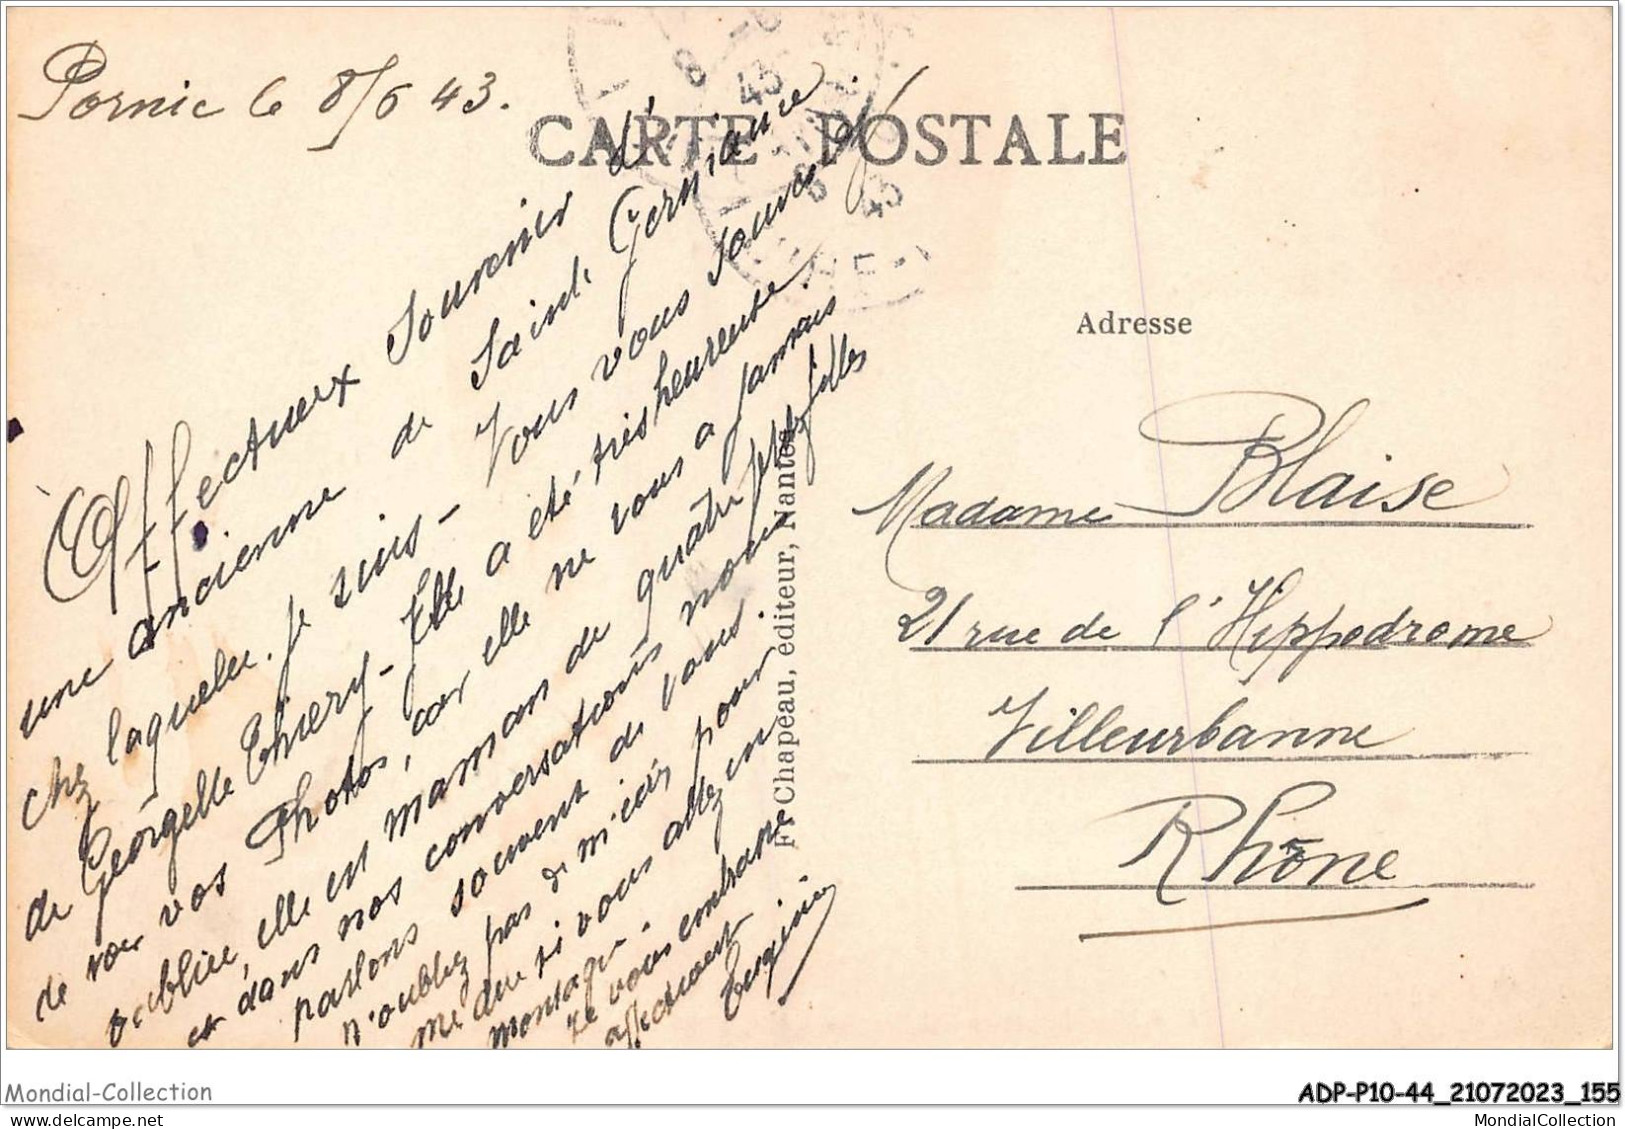 Pornic le 8/6 43.
CARTE POSTALE
Affectueux Souvenir d'
une ancienne de Sainte Germaine
chez laquelle je suis - Vous vous souvenez
de Georgette Thiery - Elle a été très heureuse
de voir vos Photos, car elle ne vous a jamais
oubliée, elle est maman de quatre petites filles
et dans nos conversations nous
parlons souvent de vous.
n'oubliez pas de m'écrir pour
me dire si vous allez en
montagne.
Je vous embrasse
affectueusement
F. Chapeau, éditeur, Nantes
Adresse
Madame Blaise
21 rue de l'Hippodrome
Villeurbanne
Rhône
Mondial-Collection
ADP-P10-44_21072023_155
www.delcampe.net
MondialCollection